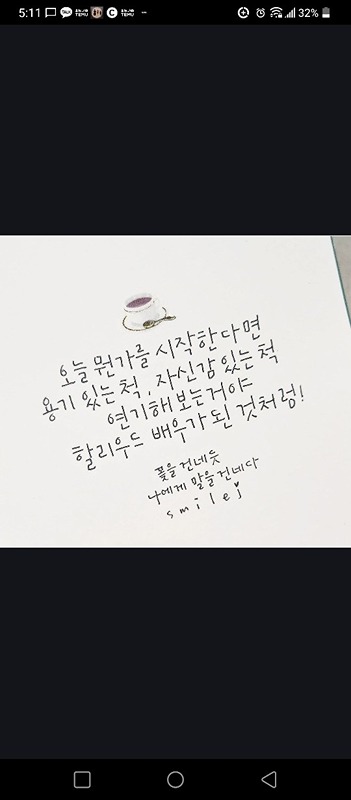 5:11
32%
오늘 뭔가를 시작한다면
용기 있는 척, 자신감 있는 척
연기해 보는거야
할리우드 배우가 된 것처럼!
꽃을 건네듯
나에게 말을 건네다
smilej